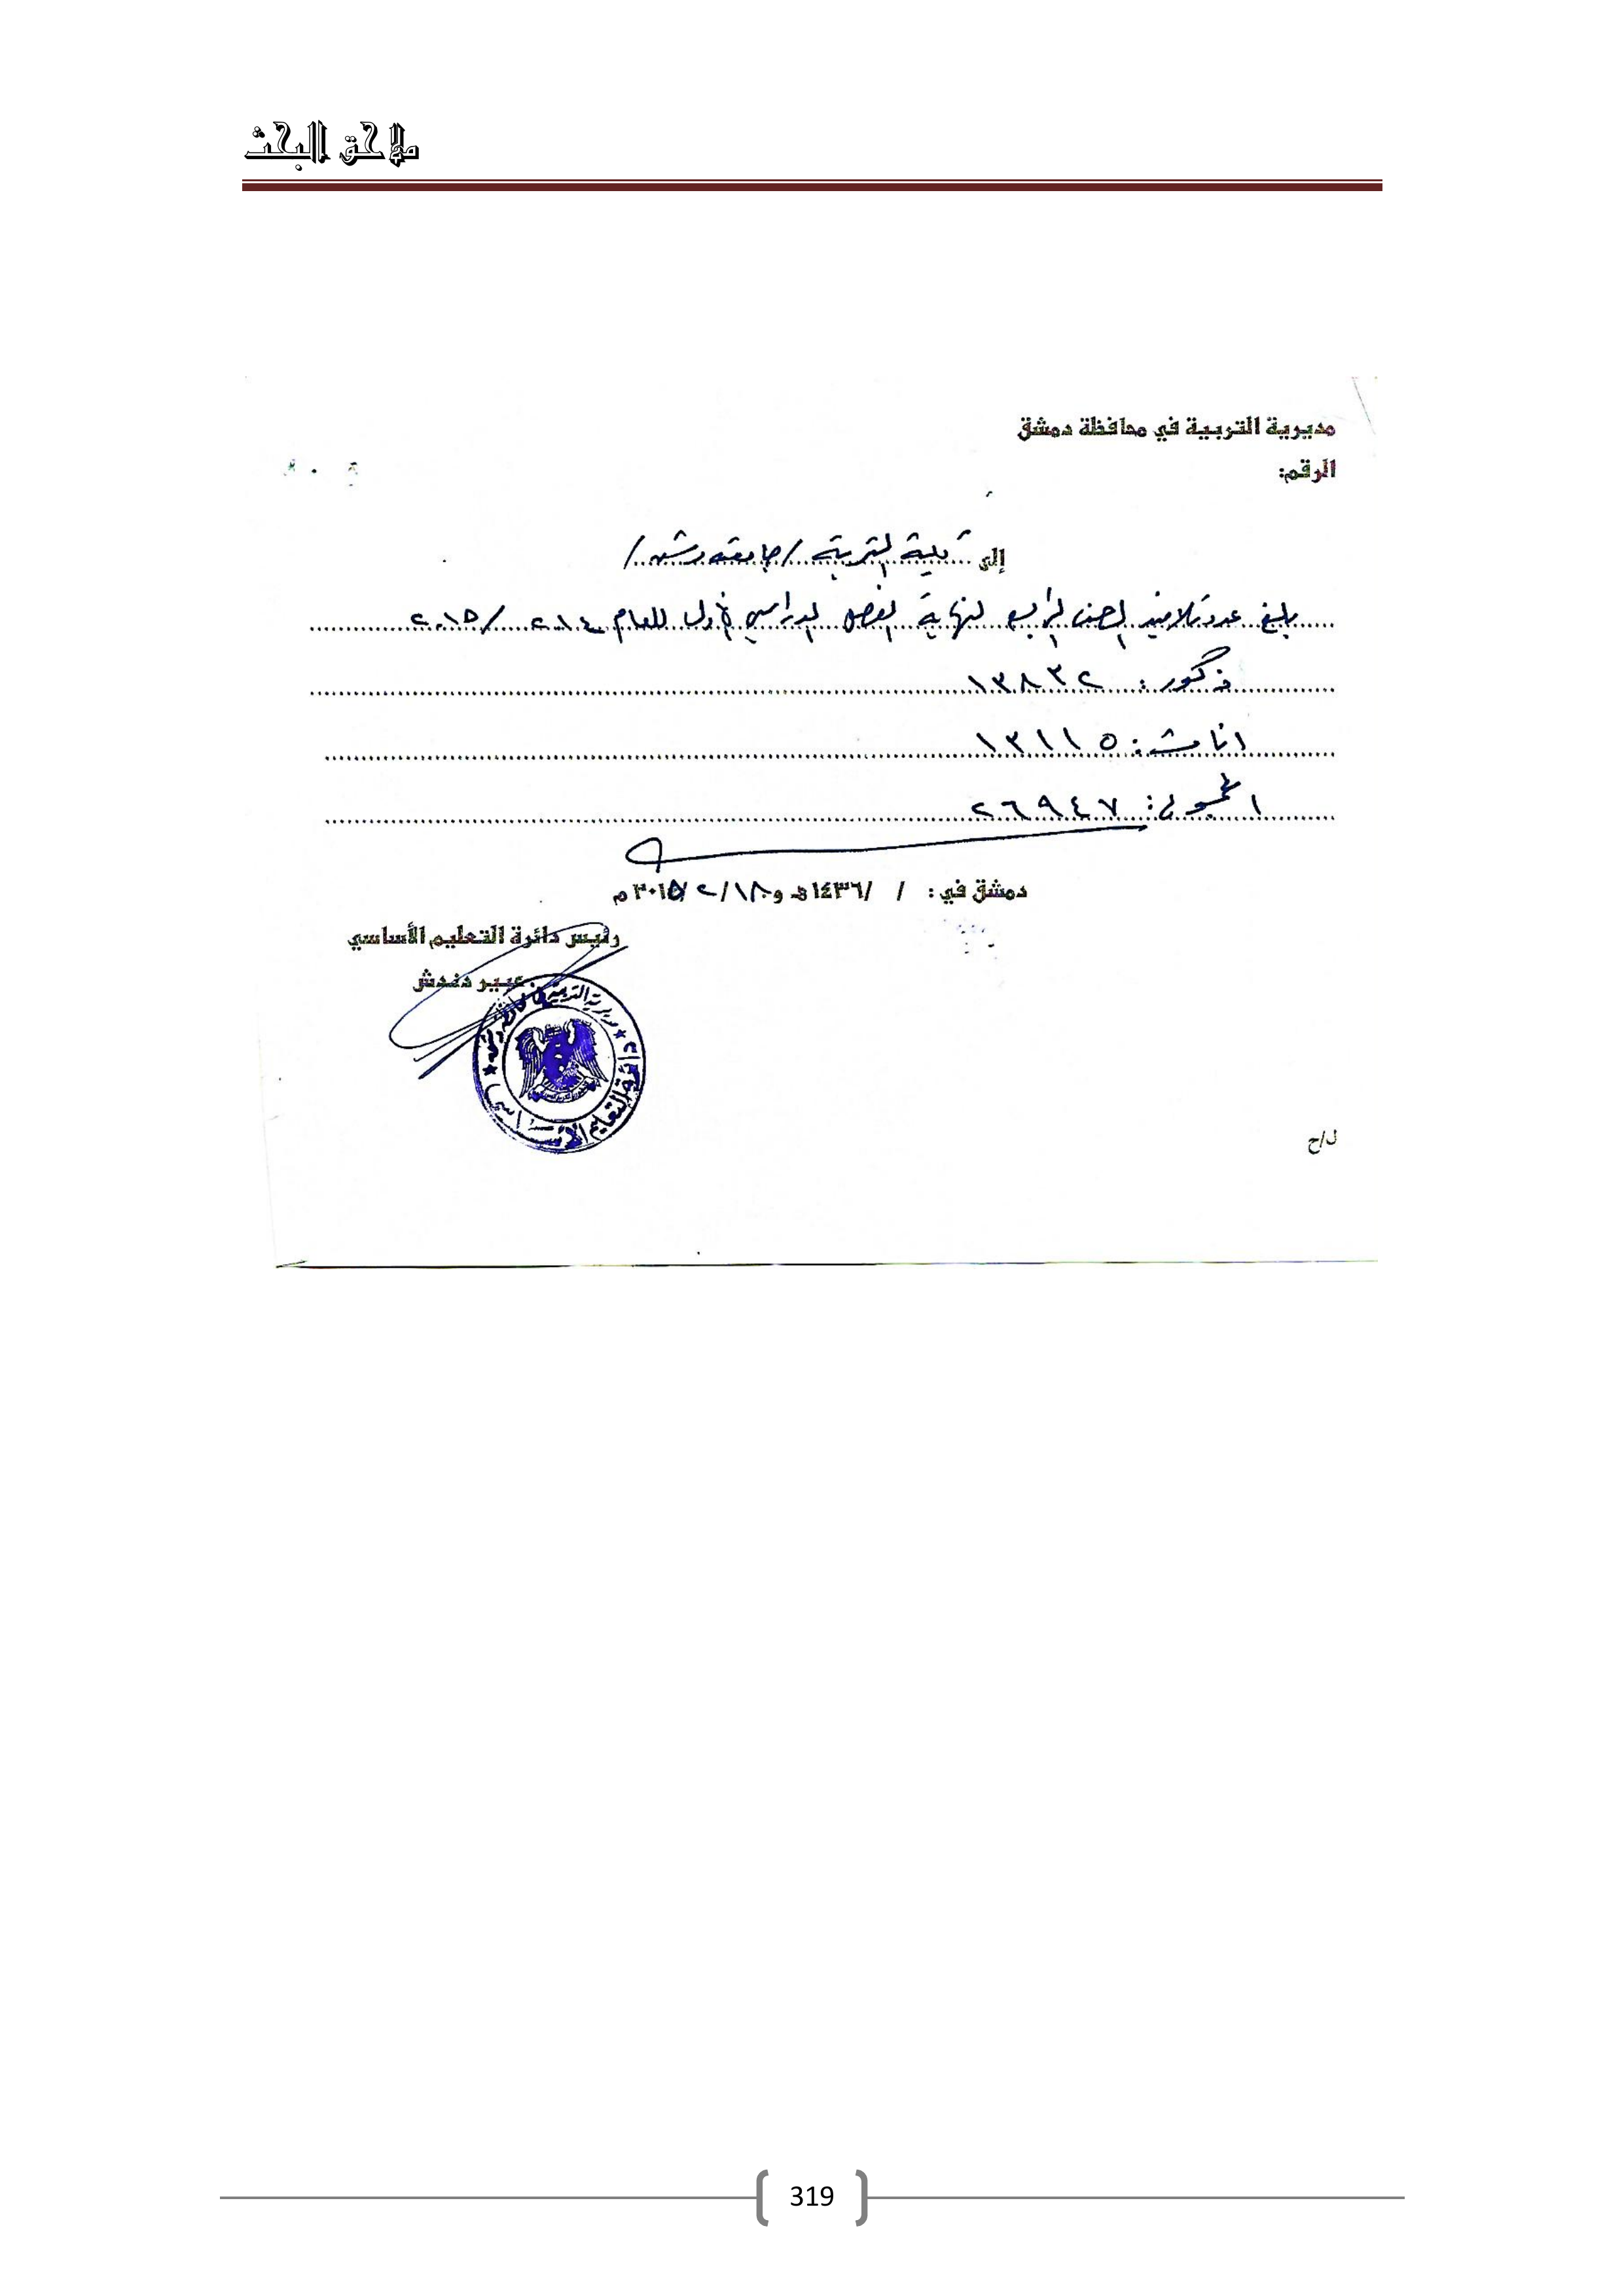 ملاحق البحث
مديرية التربية في محافظة دمشق
الرقم:
إلى كلية التربية /جامعة دمشق/
بلغ عدد تلاميذ الصف الرابع لنهاية الفصل الدراسي الأول للعام ٢٠١٤/٢٠١٥
ذكور: ١٣٨٣٢
اناث: ١٣١١٥
المجموع: ٢٦٩٤٧
دمشق في: / /١٤٣٦هـ و ١٨/٢/٢٠١٥م
رئيس دائرة التعليم الأساسي
عبير دندش
مديرية التربية في محافظة دمشق
دائرة التعليم الأساسي
ل/ح
319